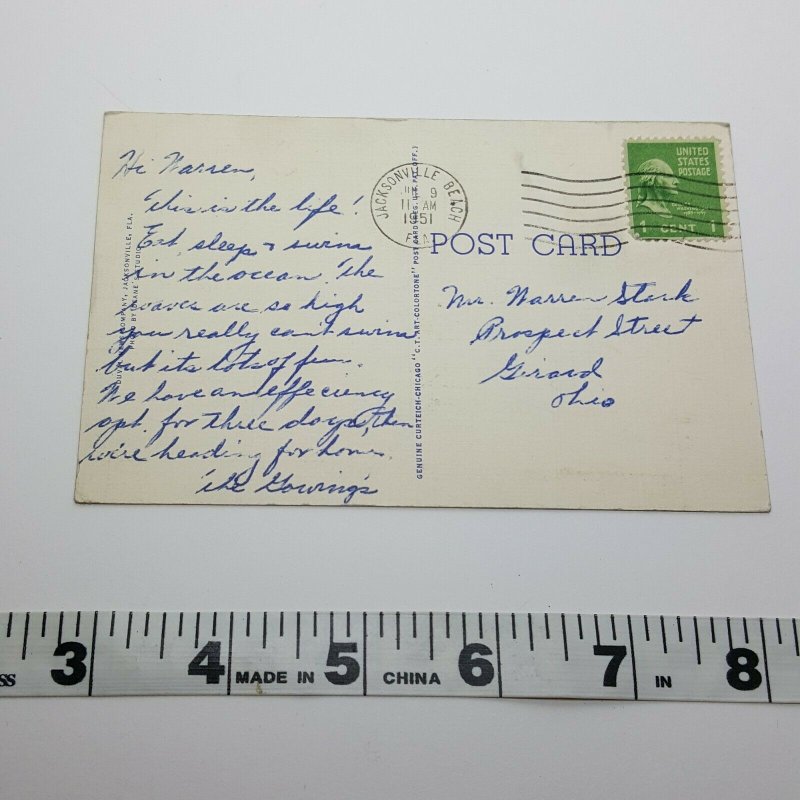 Hi Warren,
This is the life!
Eat, sleep & swim
in the ocean. The
waves are so high
you really can't swim
but its lots of fun.
We have an effeciency
apt. for three days, then
we're heading for home.
The Gowing's
JACKSONVILLE BEACH
9
11 AM
1951
UNITED
STATES
POSTAGE
1 CENT 1
POST CARD
Mr. Warren Stark
Prospect Street
Girard
Ohio
GENUINE CURTEICH-CHICAGO "C.T. ART-COLORTONE" POST CARD (REG. U.S. PAT. OFF.)
COMPANY, JACKSONVILLE, FLA.
PHOTO BY STUDIO
3 4 MADE IN 5 CHINA 6 7 IN 8